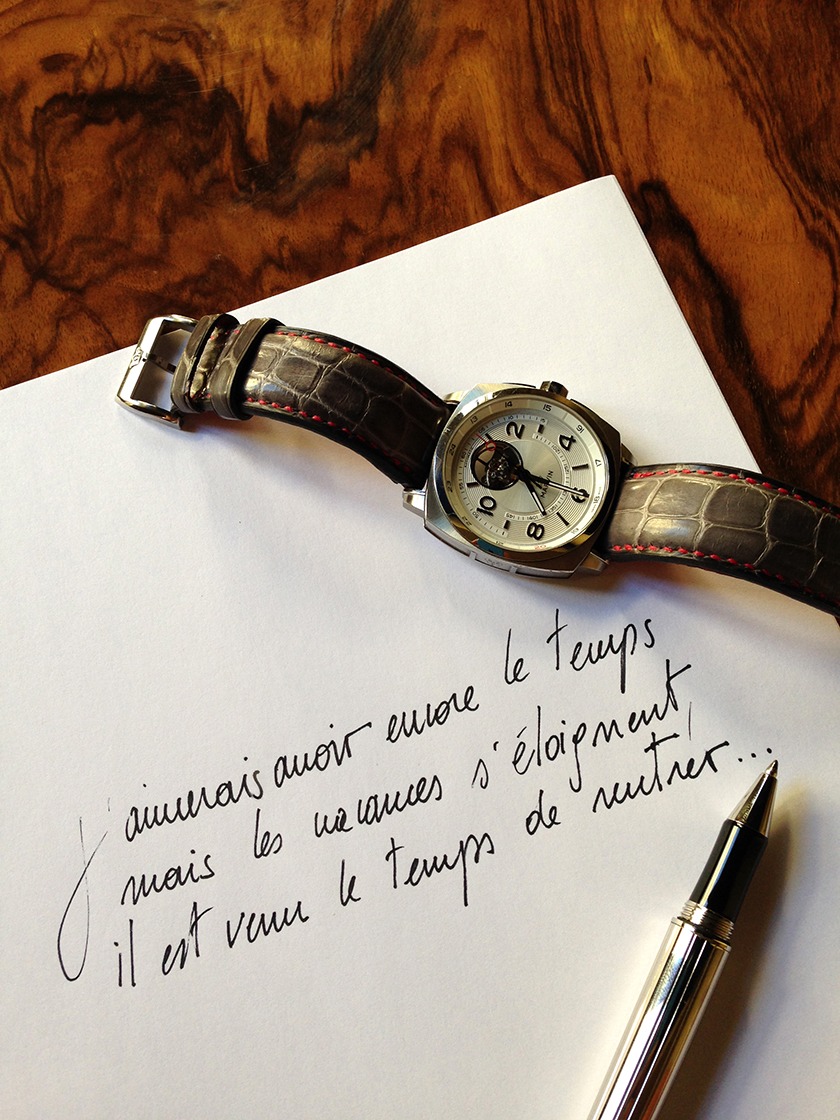 J'aimerais avoir encore le temps
mais les vacances s'éloignent,
il est venu le temps de rentrer...
2
4
6
8
10